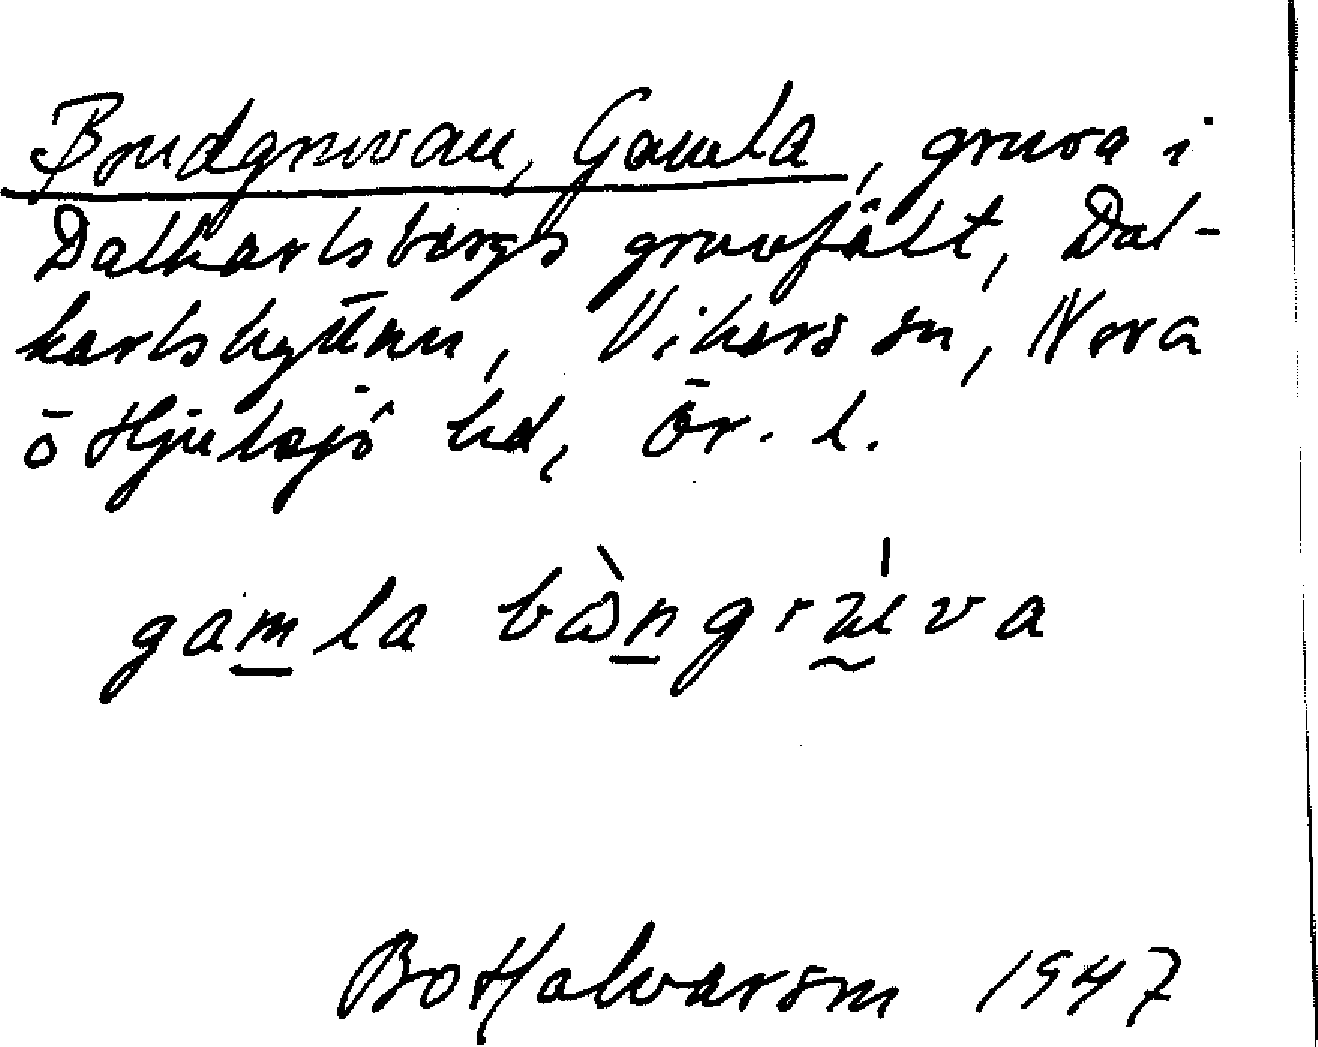 Bondgruvan, Gamla, gruva i
Dalkarlsbergs gruvfält, Dal-
karlshyttan, Vikers sn, Nora
o Hjulsjö hd, Ör. l.
gamla bòngruva
Bo Halvarson 1947